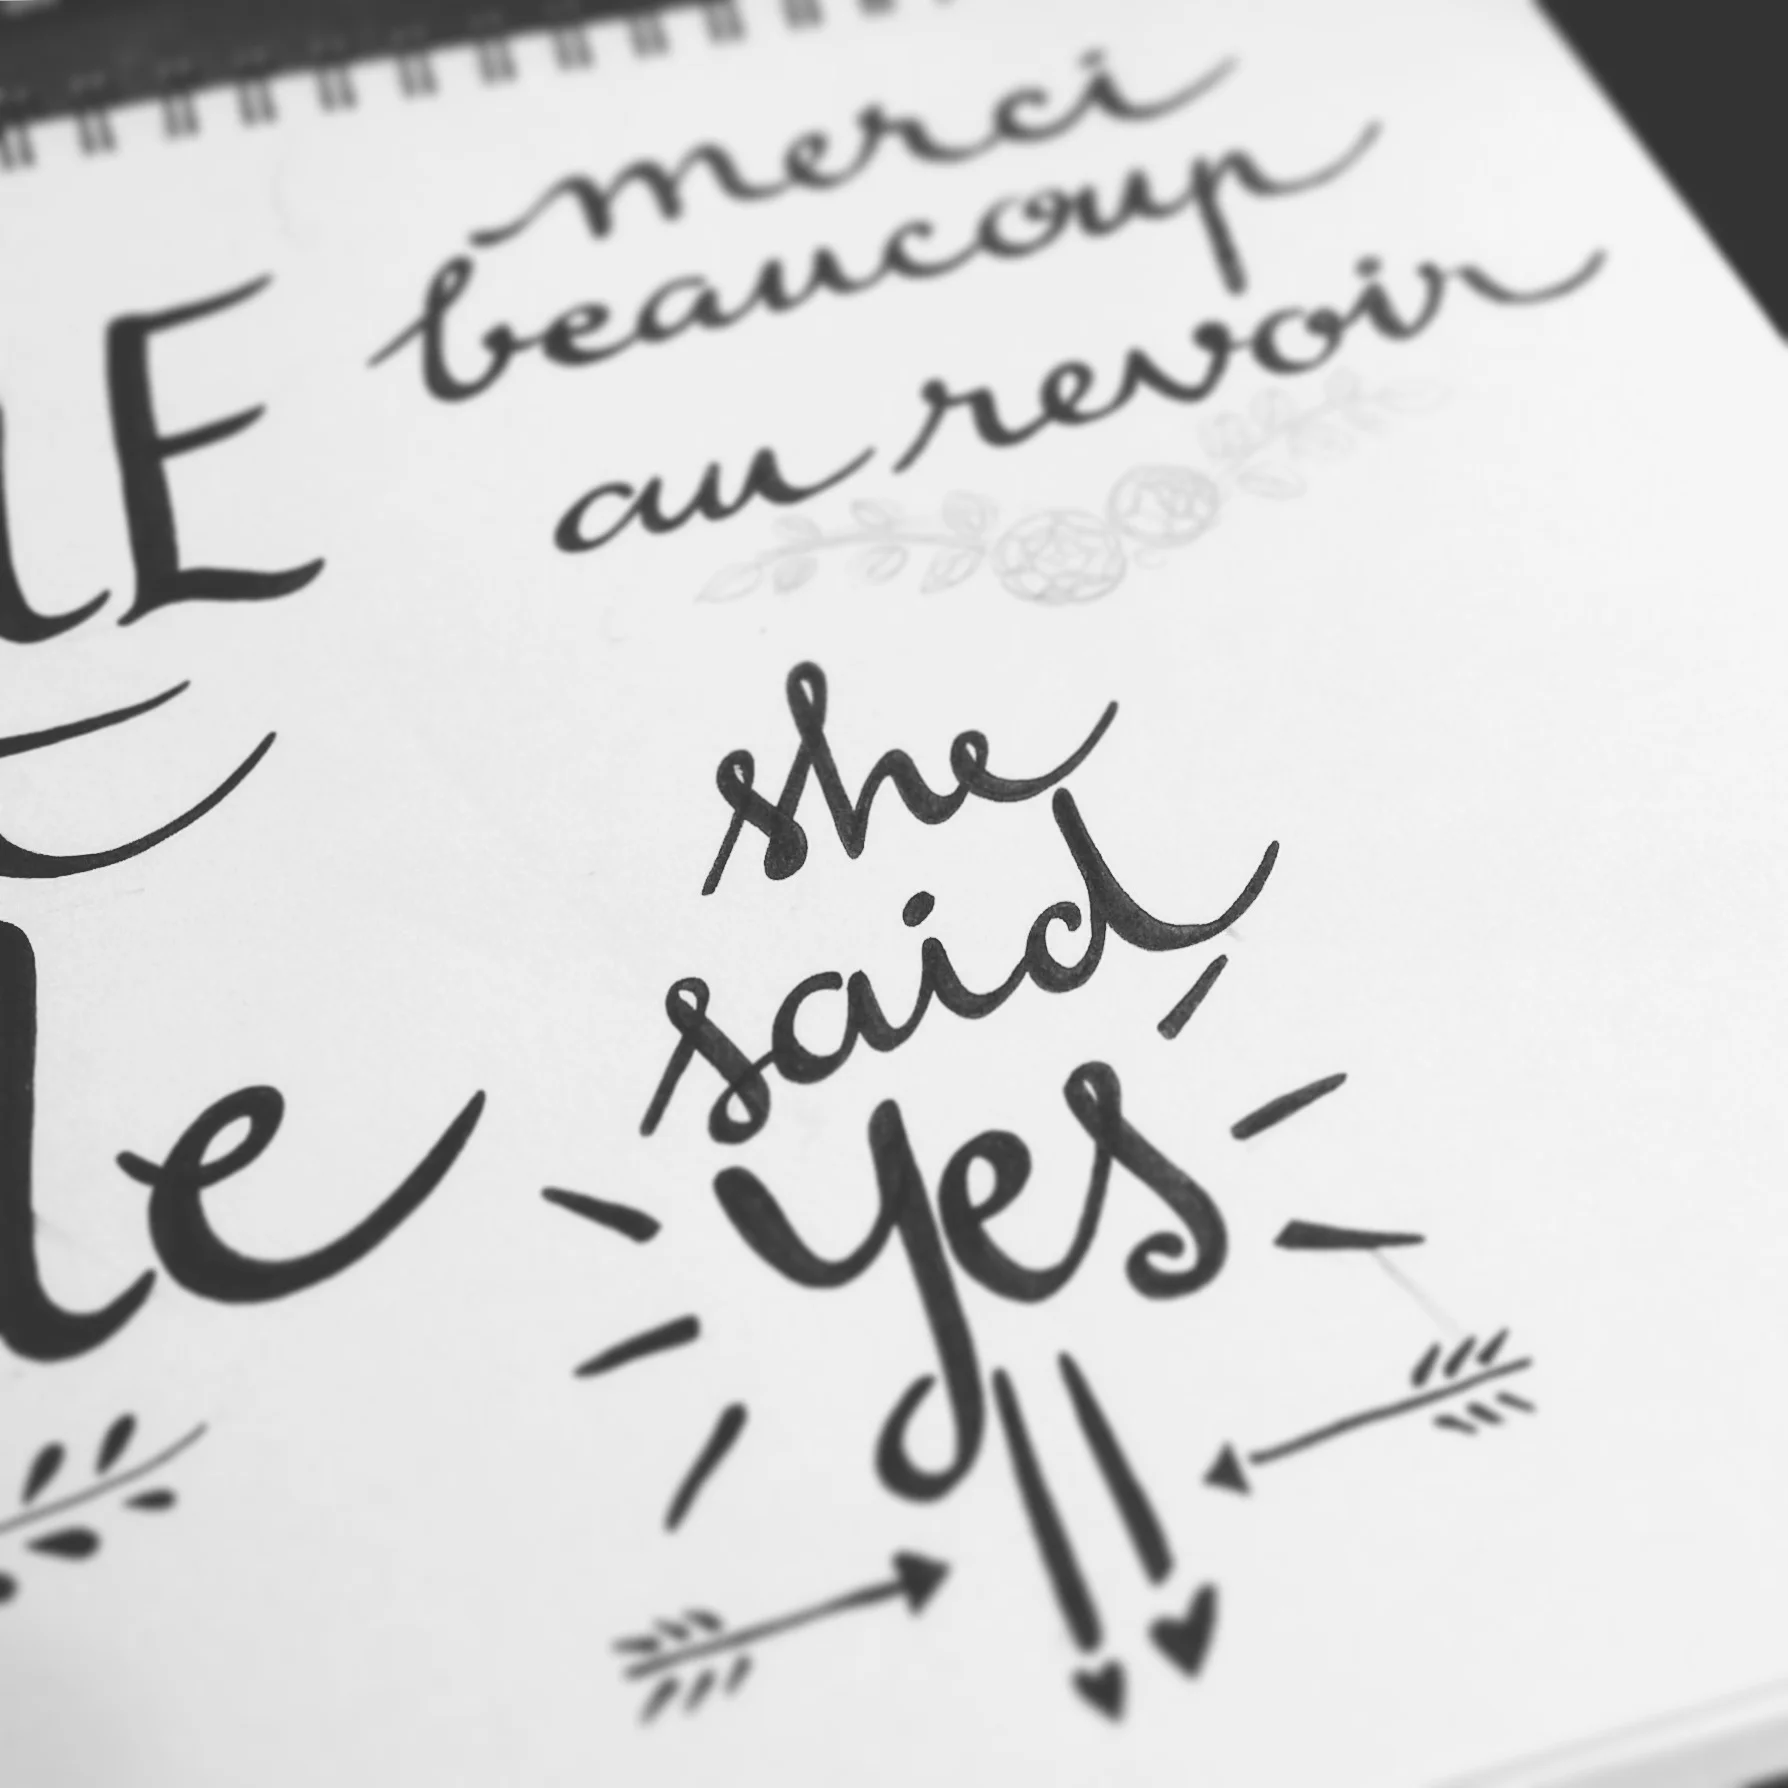 merci
beaucoup
au revoir
she
said
yes
E
le